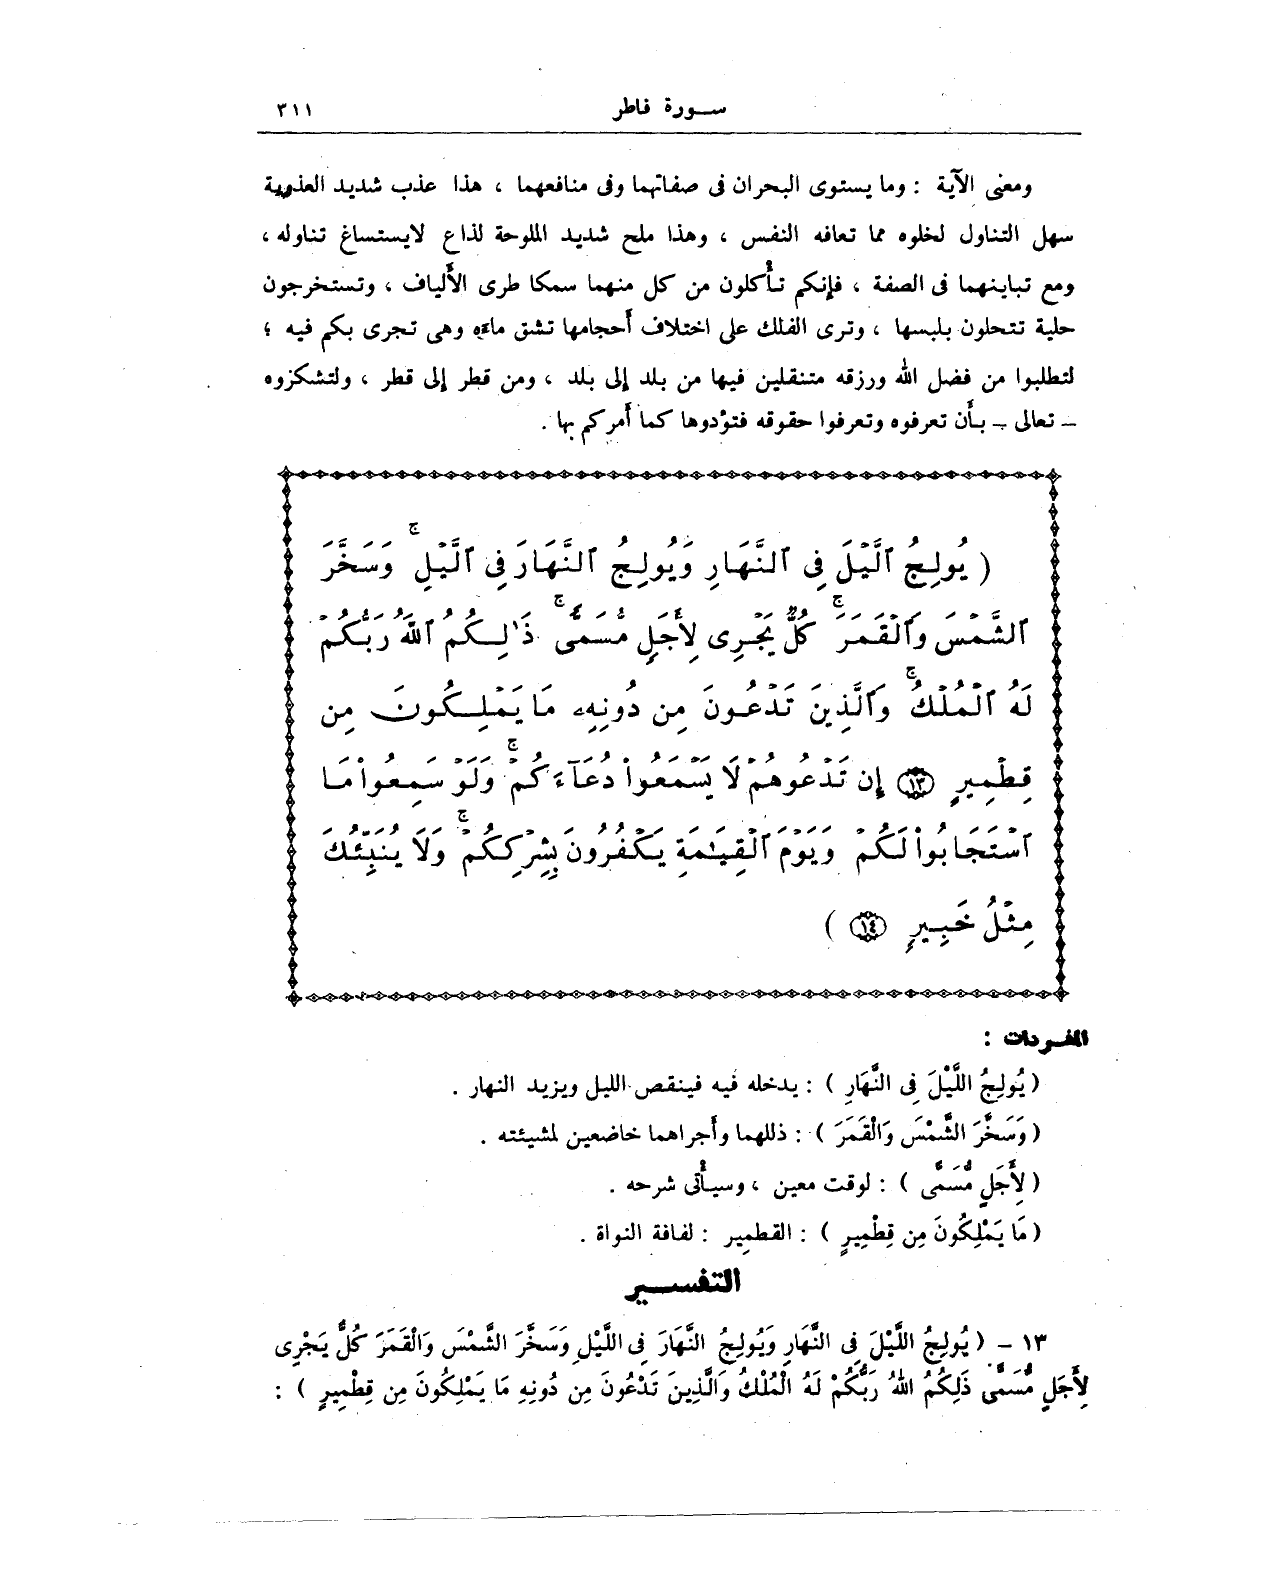 سورة فاطر ٣١١
ومعنى الآية : وما يستوى البحران فى صفاتهما وفى منافعهما ، هذا عذب شديد العذوبة
سهل التناول لخلوه مما تعافه النفس ، وهذا ملح شديد الملوحة لذاع لايستساغ تناوله ،
ومع تباينهما فى الصفة ، فإنكم تأكلون من كل منهما سمكا طرى الألياف ، وتستخرجون
حلية تتحلون بلبسها ، وترى الفلك على اختلاف أحجامها تشق ماءه وهى تجرى بكم فيه ؛
لتطلبوا من فضل الله ورزقه متنقلين فيها من بلد إلى بلد ، ومن قطر إلى قطر ، ولتشكروه
– تعالى – بأن تعرفوه وتعرفوا حقوقه فتؤدوها كما أمركم بها .
( يُولِجُ ٱلَّيْلَ فِى ٱلنَّهَارِ وَيُولِجُ ٱلنَّهَارَ فِى ٱلَّيْلِ ۚ وَسَخَّرَ
ٱلشَّمْسَ وَٱلْقَمَرَ ۚ كُلٌّ يَجْرِى لِأَجَلٍ مُّسَمًّى ۚ ذَٰلِكُمُ ٱللَّهُ رَبُّكُمْ
لَهُ ٱلْمُلْكُ ۚ وَٱلَّذِينَ تَدْعُونَ مِن دُونِهِۦ مَا يَمْلِكُونَ مِن
قِطْمِيرٍ ١٣ إِن تَدْعُوهُمْ لَا يَسْمَعُوا۟ دُعَآءَكُمْ ۚ وَلَوْ سَمِعُوا۟ مَا
ٱسْتَجَابُوا۟ لَكُمْ وَيَوْمَ ٱلْقِيَـٰمَةِ يَكْفُرُونَ بِشِرْكِكُمْ ۚ وَلَا يُنَبِّئُكَ
مِثْلُ خَبِيرٍ ١٤ )
المفردات :
( يُولِجُ اللَّيْلَ فِى النَّهَارِ ) : يدخله فيه فينقص الليل ويزيد النهار .
( وَسَخَّرَ الشَّمْسَ وَالْقَمَرَ ) : ذللهما وأجراهما خاضعين لمشيئته .
( لِأَجَلٍ مُّسَمًّى ) : لوقت معين ، وسيأتى شرحه .
( مَا يَمْلِكُونَ مِن قِطْمِيرٍ ) : القطمير : لفافة النواة .
التفسير
١٣ – ( يُولِجُ اللَّيْلَ فِى النَّهَارِ وَيُولِجُ النَّهَارَ فِى اللَّيْلِ وَسَخَّرَ الشَّمْسَ وَالْقَمَرَ كُلٌّ يَجْرِى
لِأَجَلٍ مُّسَمًّى ذَلِكُمُ اللهُ رَبُّكُمْ لَهُ الْمُلْكُ وَالَّذِينَ تَدْعُونَ مِن دُونِهِ مَا يَمْلِكُونَ مِن قِطْمِيرٍ ) :